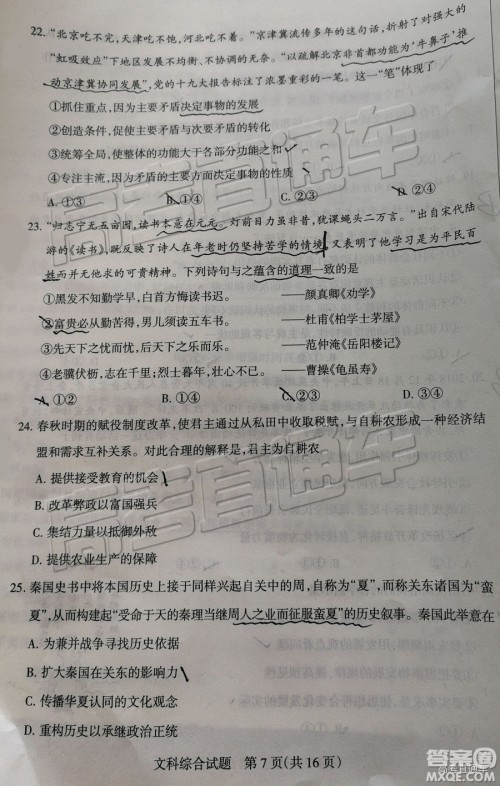 22. “北京吃不完，天津吃不饱，河北吃不着。”京津冀流传多年的这句话，折射了对强大的
“虹吸效应”下地区发展不均衡、不协调的无奈。“以疏解北京非首都功能为‘牛鼻子’推
动京津冀协同发展”，党的十九大报告标注了浓墨重彩的一笔。这一“笔”体现了
①抓住重点，因为主要矛盾决定事物的发展
②创造条件，促成主要矛盾与次要矛盾的转化
③统筹全局，使整体的功能大于各部分功能之和
④专注主流，因为主要矛盾的主要方面决定事物的性质
A. ①③ B. ①④ C. ②③ D. ②④
23. “归志宁无五亩园，读书本意在元元。灯前目力虽非昔，犹课蝇头二万言。”出自宋代陆
游的《读书》，既反映了诗人在年老时仍坚持苦学的情境，又表明了他学习是为平民百
姓而并无他求的可贵精神。下列诗句与之蕴含的道理一致的是
①黑发不知勤学早，白首方悔读书迟。 ——颜真卿《劝学》
②富贵必从勤苦得，男儿须读五车书。 ——杜甫《柏学士茅屋》
③先天下之忧而忧，后天下之乐而乐。 ——范仲淹《岳阳楼记》
④老骥伏枥，志在千里；烈士暮年，壮心不已。 ——曹操《龟虽寿》
A. ①② B. ①③ C. ②④ D. ③④
24. 春秋时期的赋役制度改革，使君主通过从私田中收取税赋，与自耕农形成一种经济结
盟和需求互补关系。对此合理的解释是，君主为自耕农
A. 提供接受教育的机会
B. 改革弊政以富国强兵
C. 集结力量以抵御外敌
D. 提供农业生产的保障
25. 秦国史书中将本国历史上接于同样兴起自关中的周，自称为“夏”，而称关东诸国为“蛮
夏”，从而构建起“受命于天的秦理当继周人之业而征服蛮夏”的历史叙事。秦国此举意在
A. 为兼并战争寻找历史依据
B. 扩大秦国在关东的影响力
C. 传播华夏认同的文化观念
D. 重构历史以承继政治正统
文科综合试题 第 7 页(共 16 页)
高考直通车
高考直通车
答案圈
MXQE.COM